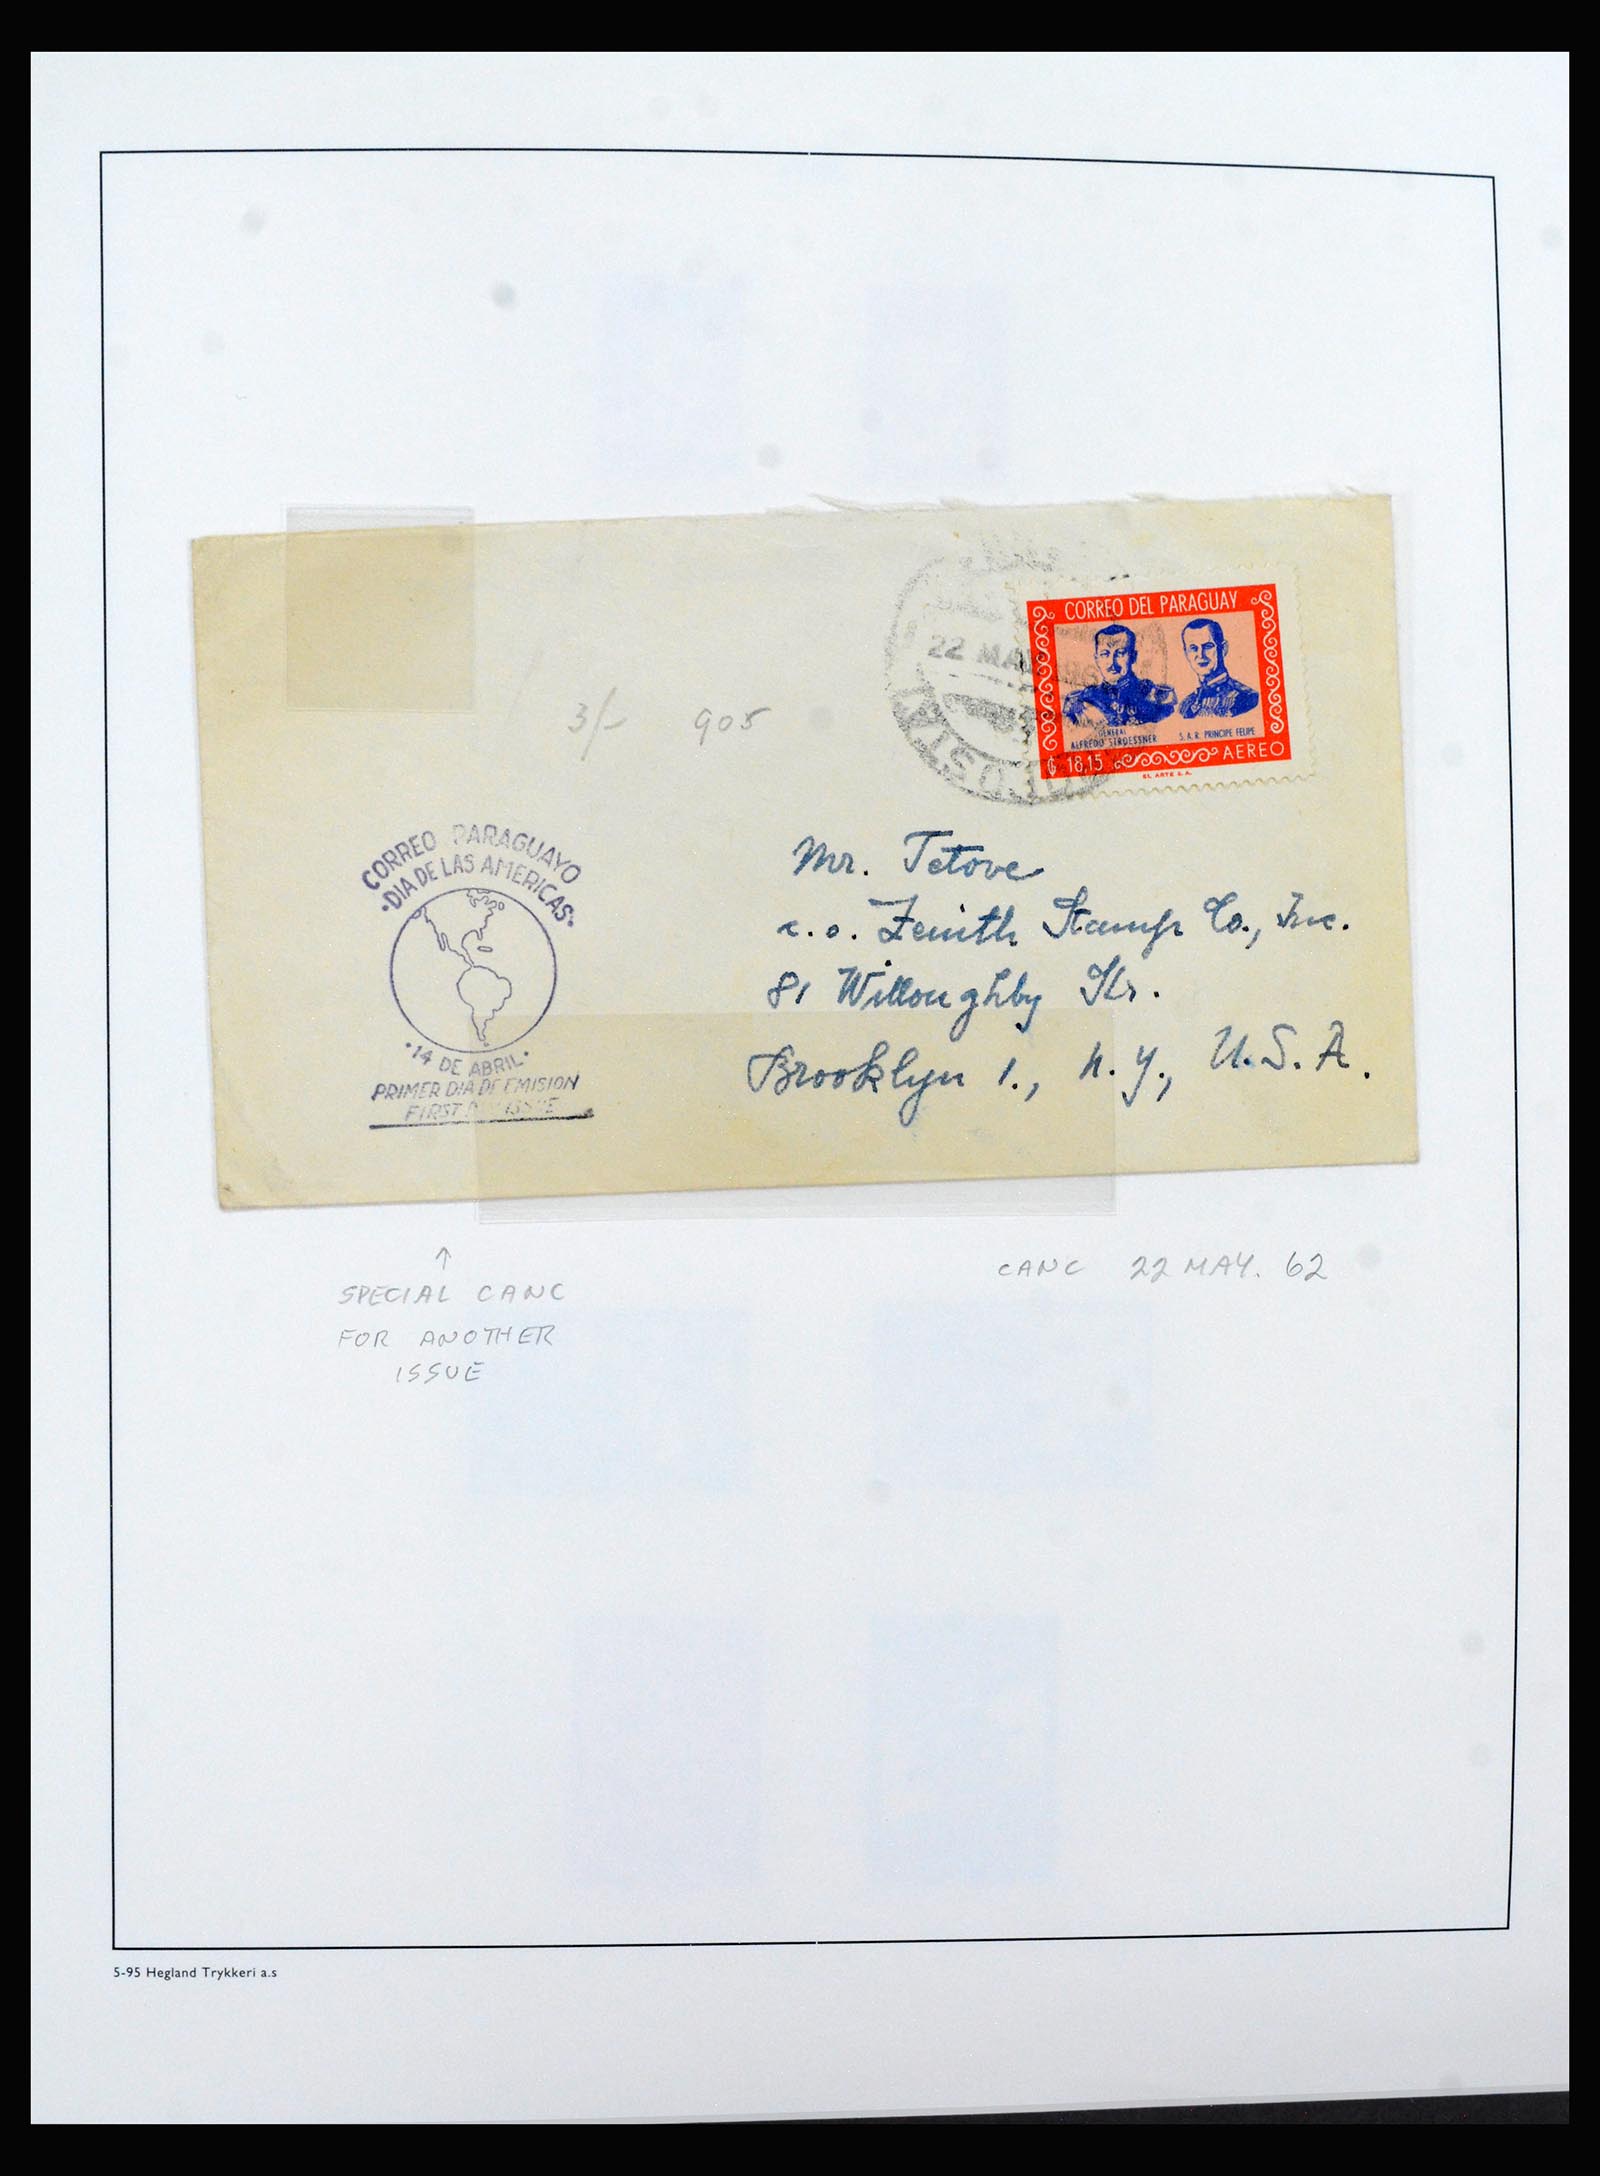 22 MAY
CORREO DEL PARAGUAY
GENERAL
ALFREDO STROESSNER
S.A.R. PRINCIPE FELIPE
₲ 18,15
AEREO
EL ARTE S.A.
3/- 905
CORREO PARAGUAYO
·DIA DE LAS AMERICAS·
·14 DE ABRIL·
PRIMER DIA DE EMISION
FIRST DAY ISSUE
Mr. Tetove
c.o. Zenith Stamp Co., Inc.
81 Willoughby Str.
Brooklyn 1., N.Y., U.S.A.
↑
SPECIAL CANC
FOR ANOTHER
ISSUE
CANC 22 MAY. 62
5-95 Hegland Trykkeri a.s